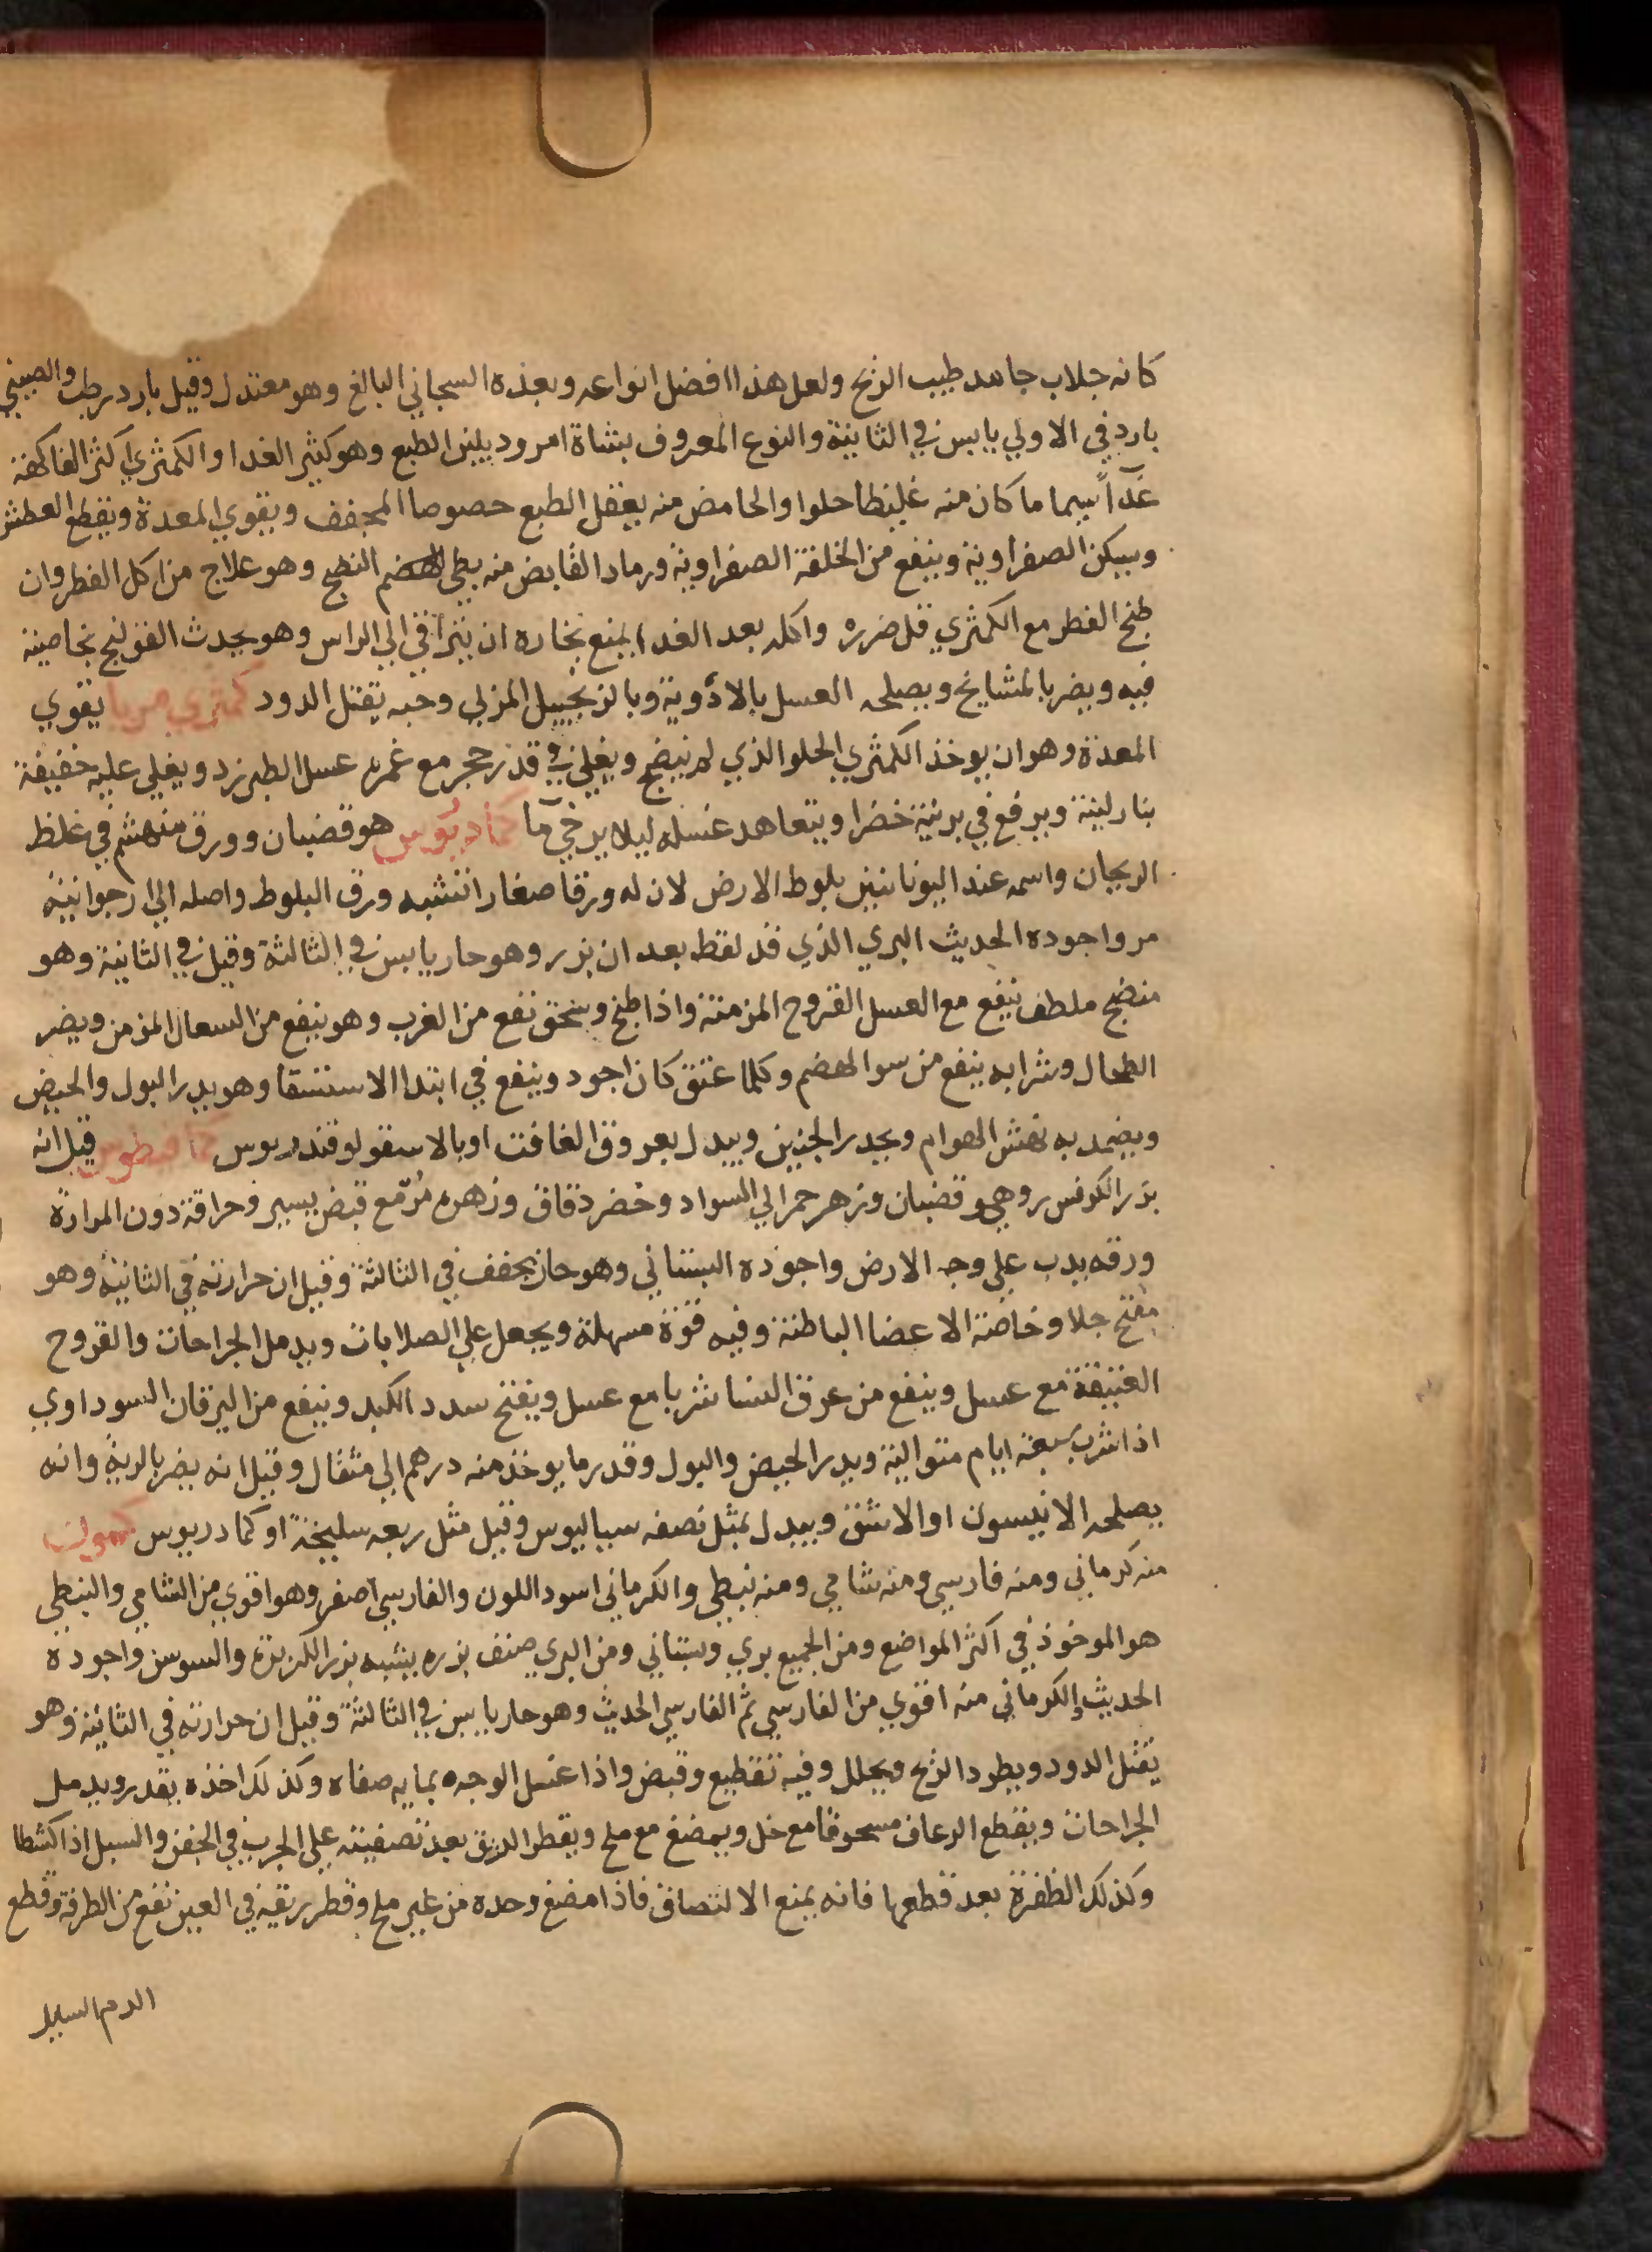 كانه جلاب جامد طيب الريح ولعل هذا افضل انواعه وبعده السجاني البالغ وهو معتدل وقيل بارد رطب والصيني
بارد في الاولي يابس في الثانية والنوع المعروف بشاة امرود يلين الطبع وهو كثير الغدا والكمثري اكثر الفاكهة
غدآً سيما ما كان منه غليظا حلوا والحامض منه يعقل الطبع خصوصا المجفف ويقوي المعدة ويقطع العطش
ويسكن الصفراوية وينفع من الخلفة الصفراوية ورماد القابض منه بطي الهضم النضج وهو علاج من اكل الفطر وان
طبخ الفطر مع الكمثري قل ضرره واكله بعد الغدا يمنع بخاره ان يتراقي الي الراس وهو يحدث القولنج بخاصية
فيه ويضر بالمشايخ ويصلحه العسل بالادوية وبالزنجبيل المربي وحبه يقتل الدود كمثري مربا يقوي
المعدة وهو ان يوخذ الكمثري الحلو الذي لم ينضج ويغلي في قدر حجر مع غمره عسل الطبرزد ويغلي عليه خفيفة
بنار لينة ويرفع في برنية خضرا ويتعاهد غسله ليلا يرخي ما كمادريوس هو قضبان وورق منهشم في غلظ
الريحان واسمه عند اليونانيين بلوط الارض لان له ورقا صغارا تشبه ورق البلوط واصله الي ارجوانية
مر واجوده الحديث البري الذي قد لقط بعد ان بزر وهو حار يابس في الثالثة وقيل في الثانية وهو
منضج ملطف ينفع مع العسل القروح المزمنة واذا طبخ وسحق نفع من الغرب وهو ينفع من السعال المزمن ويضر
الطحال وشرابه ينفع من سو الهضم وكلما عتق كان اجود وينفع في ابتدا الاستسقا وهو يدر البول والحيض
ويضمد به نهش الهوام ويحدر الجنين ويبدل بعروق الغافت او بالاسقولوقندريوس كمافيطوس قيل انه
بزر الكرفس روهي وقضبان وزهر حمر الي السواد وخضر دقاق وزهره مر مع قبض يسير وحراقة دون المرارة
ورقه يدب علي وجه الارض واجوده البستاني وهو حار مجفف في الثالثة وقيل ان حرارته في الثانية وهو
مفتح جلا وخاصة الاعضا الباطنة وفيه قوة مسهلة ويجعل علي الصلابات ويدمل الجراحات والقروح
العتيقة مع عسل وينفع من عرق النسا شربا مع عسل ويفتح سدد الكبد وينفع من اليرقان السوداوي
اذا شرب سبعة ايام متوالية ويدر الحيض والبول وقدر ما يوخذ منه درهم الي مثقال وقيل انه يضر بالرية وانه
يصلحه الانيسون او الاشق ويبدل بمثل نصفه سياليوس وقيل مثل ربعه سليخة او كمادريوس كمون
منه كرماني ومنه فارسي ومنه شامي ومنه نبطي والكرماني اسود اللون والفارسي اصفر وهو اقوي من الشامي والنبطي
هو الموخوذ في اكثر المواضع ومن الجميع بري وبستاني ومن البري صنف بزره يشبه بزر الكزبرة والسوسن واجوده
الحديث الكرماني منه اقوي من الفارسي ثم الفارسي الحديث وهو حار يابس في الثالثة وقيل ان حرارته في الثانية وهو
يقتل الدود ويطرد الريح ويحلل وفيه تقطيع وقبض واذا غسل الوجه بمايه صفاه وكذلك اخذه بقدر ويدمل
الجراحات ويقطع الرعاف مسحوقا مع خل ويمضغ مع ملح ويقطر الريق بعد تصفيته علي الجرب في الجفن والسبل اذا كشطا
وكذلك الظفرة بعد قطعها فانه يمنع الالتصاق فاذا مضغ وحده من غير ملح وقطر ريقه في العين نفع من الطرفة وقطع
الدم السايل